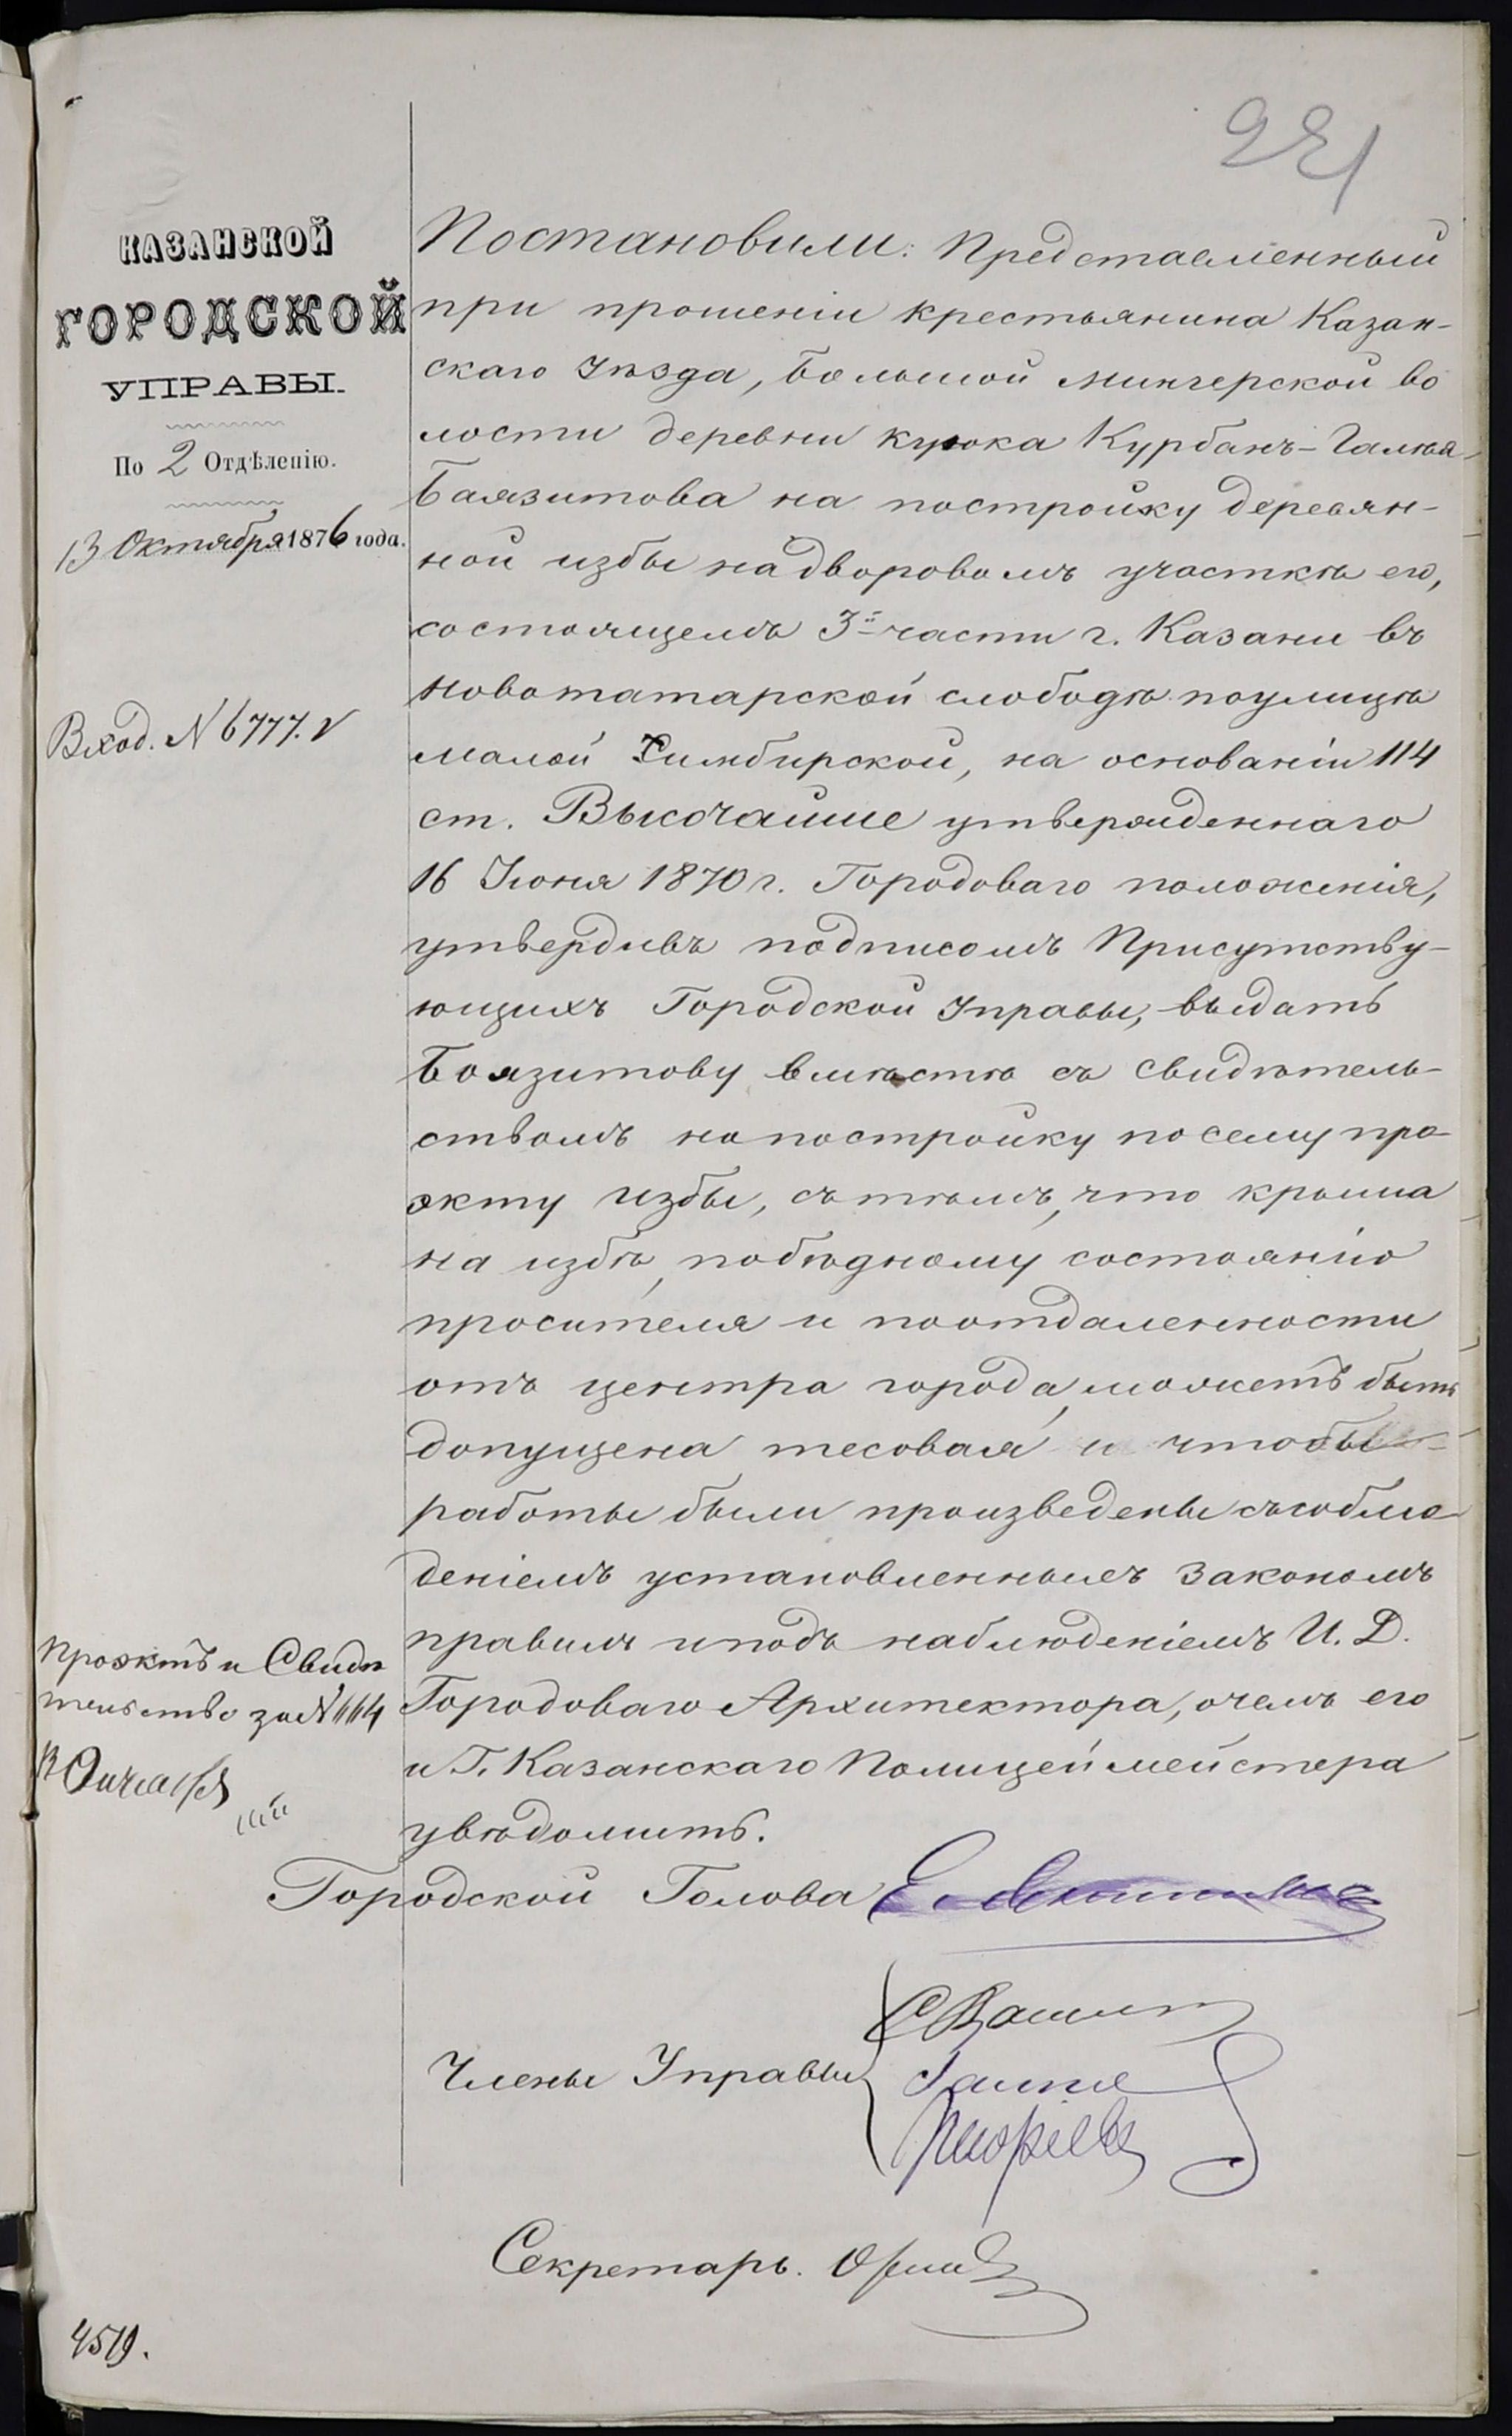 221
КАЗАНСКОЙ
ГОРОДСКОЙ
УПРАВЫ.
По 2 Отдѣленію.
13 Октября 1876 года.
Вход. № 6777.
Постановили: Представленный
при прошеніи крестьянина Казан-
скаго Уѣзда, Большой Менгерской во
лости деревни Курбанъ-Галѣя
Баязитова на постройку деревян-
ной избы на дворовомъ участкѣ его,
состоящемъ 3й части г. Казани въ
Новотатарской слободѣ по улицѣ
малой Симбирской, на основаніи 114
ст. Высочайше утвержденнаго
16 Іюня 1870 г. Городоваго положенія,
утвердивъ подписомъ Присутству-
ющихъ Городской Управы, выдать
Боязитову вмѣстѣ съ свидѣтель-
ствомъ на постройку по сему про-
экту избы, съ тѣмъ, что крыша
на избѣ, по бѣдному состоянію
просителя и по отдаленности
отъ центра города, можетъ быть
допущена тесовая и чтобы
работы были произведены съ соблю-
деніемъ установленныхъ закономъ
правилъ и подъ наблюденіемъ И. Д.
Городоваго Архитектора, о чемъ его
и Г. Казанскаго Полицеймейстера
увѣдомить.
Проэктъ и Свидѣ
тельство за №
Городской Голова
Члены Управы
Секретарь.
4519.